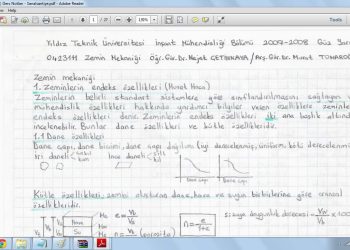 Ders Notları - Sanalsantiye.pdf - Adobe Reader
1 / 27
Yıldız Teknik Üniversitesi İnşaat Mühendisliği Bölümü 2007-2008 Güz Yar
0423111 Zemin Mekaniği Öğr. Gör. Dr. Nejat ÇETİNKAYA / Arş. Gör. Dr. Murat TONARO
Zemin mekaniği
1. Zeminlerin endeks özellikleri
Zeminlerin belirli standart sistemlere göre sınıflandırılmasını sağlayan
mühendislik özellikleri hakkında yardımcı bilgiler veren özelliklere zeminle
endeks özellikleri denir. Zeminlerin endeks özellikleri iki ana başlık altınd
incelenebilir. Bunlar dane özellikleri ve kütle özellikleridir.
1.1 Dane özellikleri
Dane çapı, dane biçimi, dane çapı dağılımı (iyi derecelenmiş, üniform, kötü derecelenmi
İri daneli İnce daneli
Dane çapı Dane çapı
Kütle özellikleri, zemini oluşturan dane, hava ve suyun birbirlerine göre oransal
özellikleridir.
Hava
Su
n = e / 1+e
(porozite)